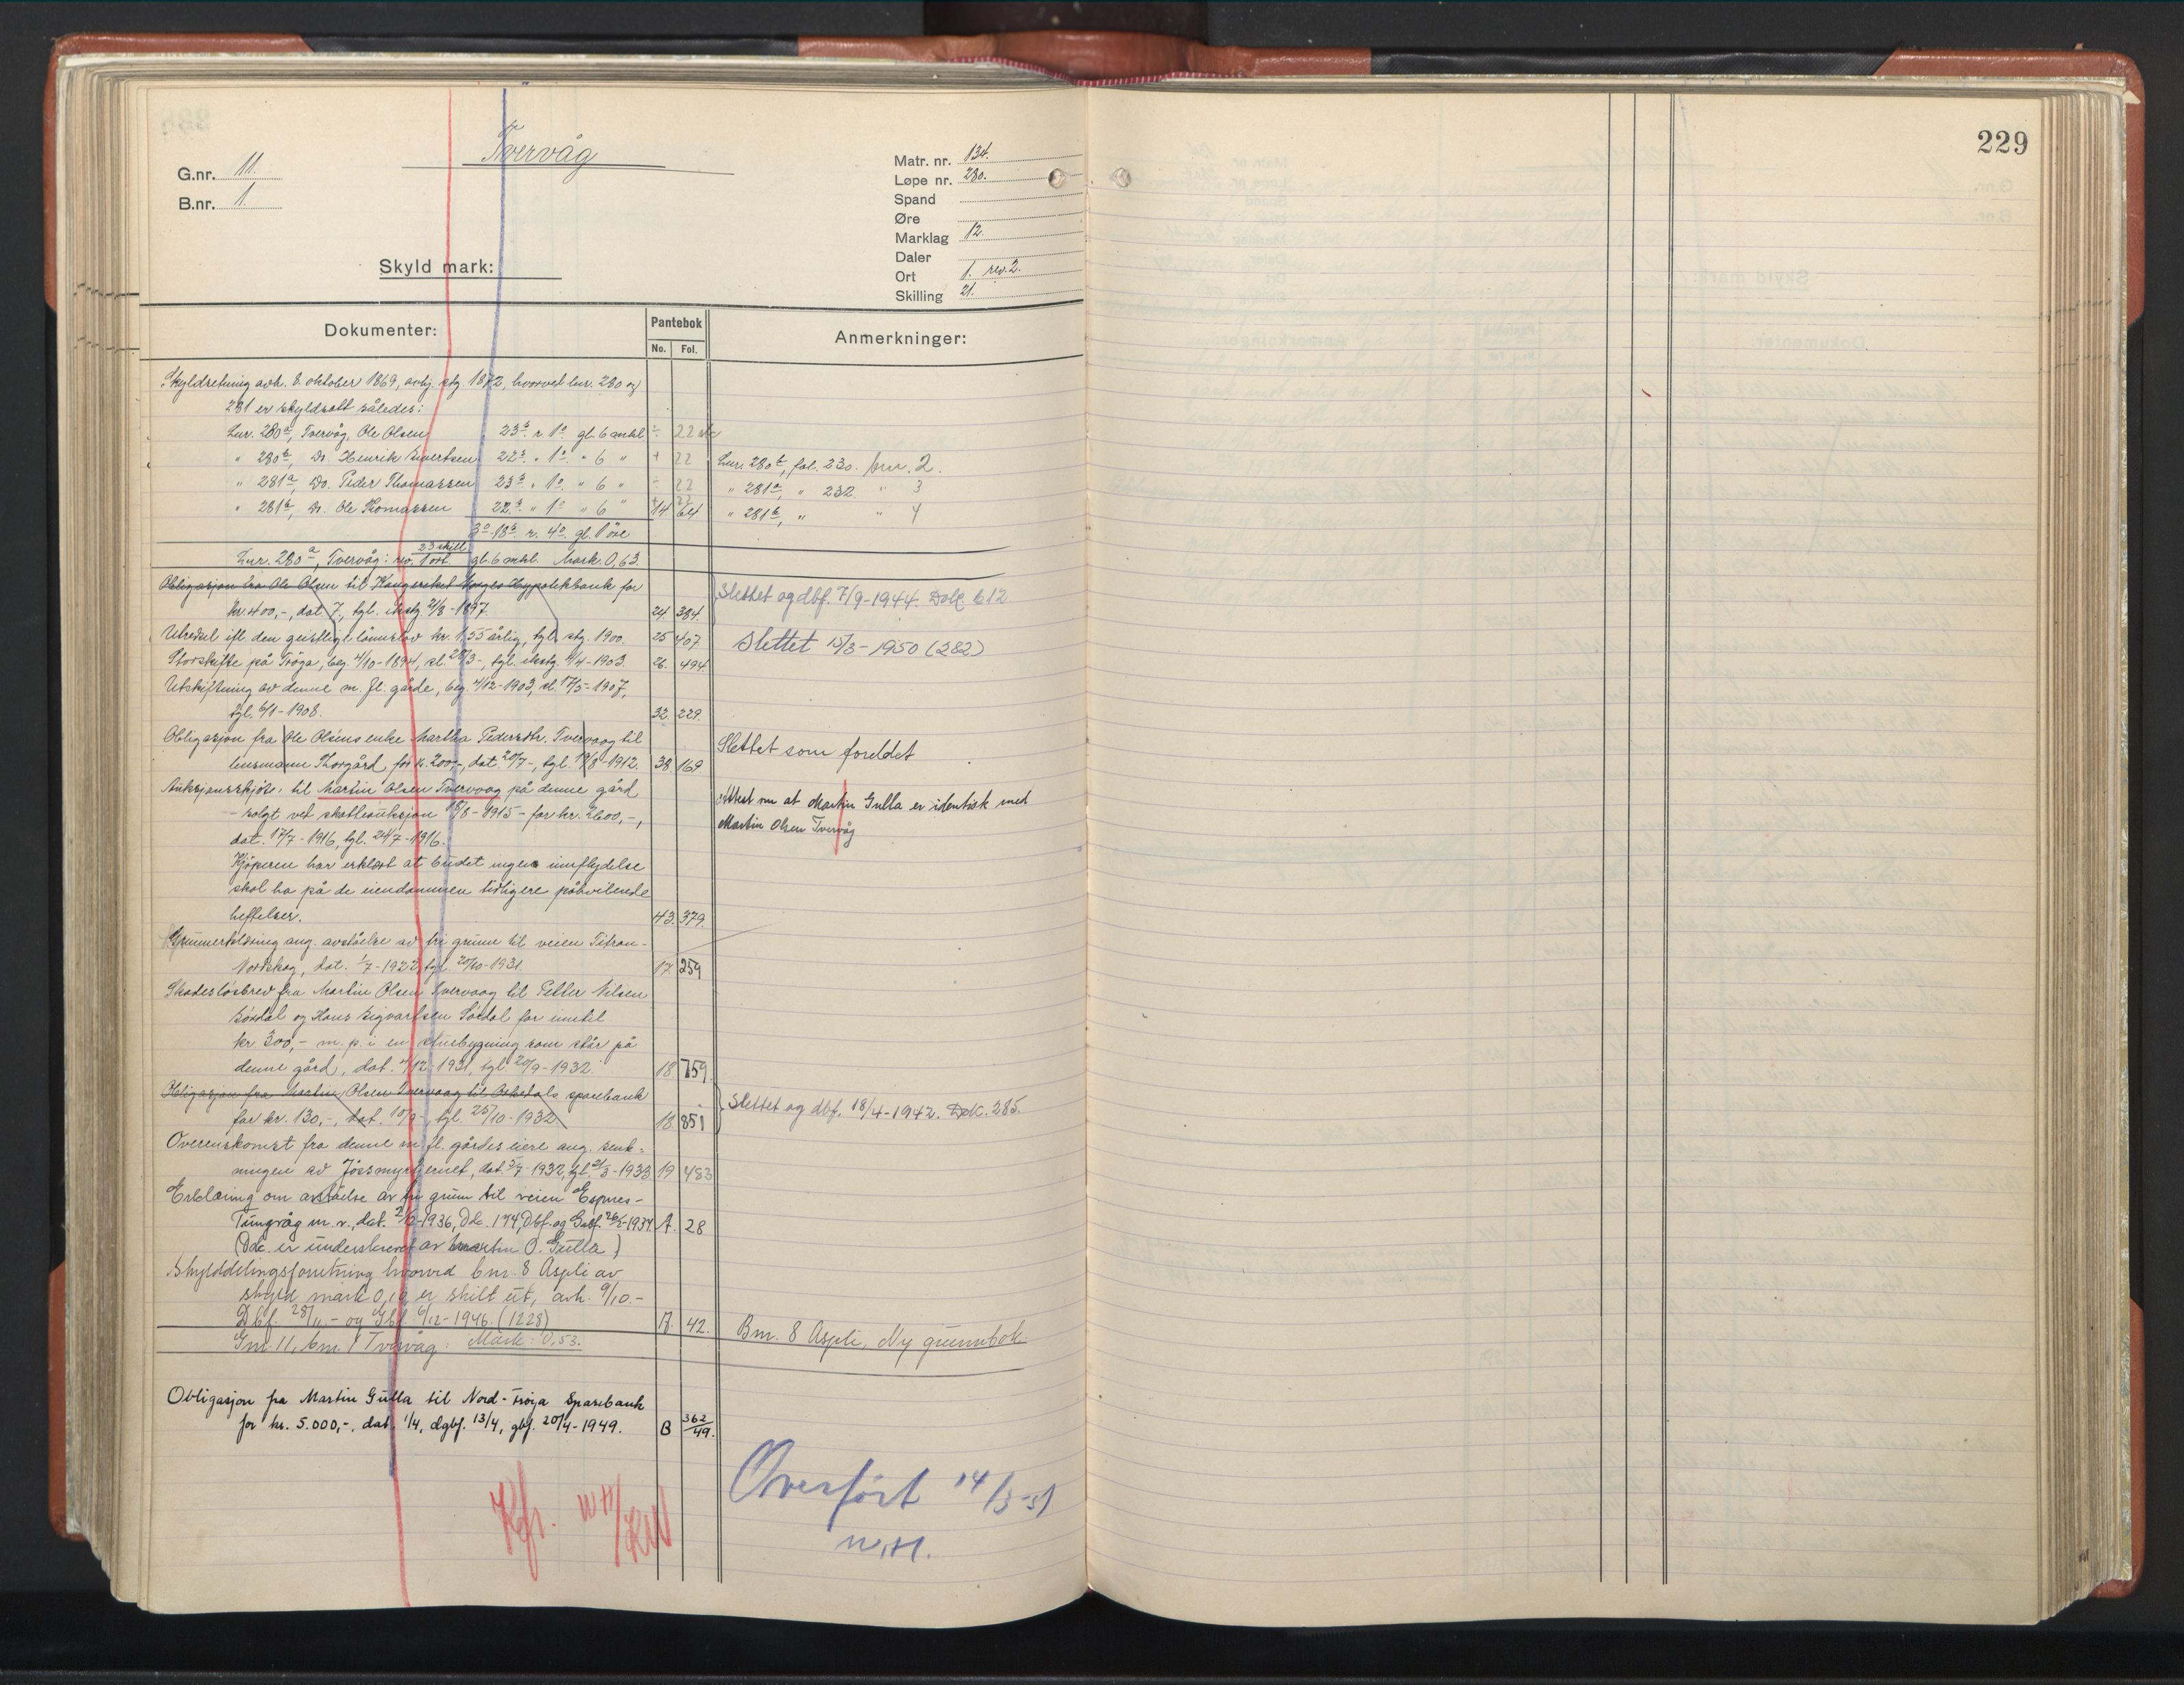 229
Tvervåg
G.nr. 11.
B.nr. 1.
Matr. nr. 134.
Løpe nr. 280.
Spand
Øre
Marklag 12.
Daler
Ort 1. rev. 2.
Skilling 21.
Skyld mark:
Dokumenter:
Pantebok
No. Fol.
Anmerkninger:
Skyldsetning avh. 8. oktober 1869, avhj. stg. 1872, hvorved lnr. 280 og
281 er skyldsatt således:
Lnr. 280a, Tvervåg, Ole Olsen 23s. r. 1o. gl. 6 mrkl ÷ 22
" 280b, Do. Henrik Sivertsen 22s. " 1o. " 6 " + 22 Lnr. 280b, fol. 230. bnr. 2.
" 281a, Do. Peder Thomassen 23s. " 1o. " 6 " ÷ 22 " 281a, " 232. " 3
" 281b, Do. Ole Thomassen 22s. " 1o " 6 " 14 64 " 281b, " " 4
3o 18s. r. 4o. gl. 1 øre
23 skill.
Lnr. 280a, Tvervåg: rev. 1 ort gl. 6 mrkl. Mark 0,63.
Obligasjon fra Ole Olsen til Kongeriket Norges Hypotekbank for
kr. 400,-, dat. 7, tgl. ekstg 21/8-1897. 24. 384. Slettet og dbf. 7/9-1944. Dok. 612
Utredsel ifl. den geistlige lønnslov kr. 1,55 årlig, tgl. stg. 1900. 25 407 Slettet 15/3-1950 (282)
Storskifte på Frøya, beg. 4/10-1894, sl. 28/3-, tgl. ekstg. 4/4-1903. 26. 494.
Utskiftning av denne m. fl. gårde, beg. 4/12-1903, sl. 17/5-1907,
tgl. 6/1-1908. 32. 229.
Obligasjon fra Ole Olsens enke Martha Pedersdtr. Tvervaag til
lensmann Thorgård, for k. 200,-, dat. 20/7-, tgl. 19/8-1912. 38. 169. Slettet som foreldet
Auksjonsskjøte til Martin Olsen Tvervaag på denne gård
- solgt ved skatteauksjon 18/8-1915- for kr. 2600,-,
dat. 17/7-1916, tgl. 24/7-1916.
Attest om at Martin Gulla er identisk med
Martin Olsen Tvervåg
Kjøperen har erklært at budet ingen innflydelse
skal ha på de eiendommen tidligere påhvilende
heftelser. 43. 379.
Grunnerklæring ang. avståelse av fri grunn til veien Titran-
Nordskag, dat. 1/7-1922, tgl. 20/10-1931. 17. 259
Skadesløsbrev fra Martin Olsen Tvervaag til Petter Nilsen
Sördal og Hans Sigvartsen Sördal for inntil
kr 300,- m. p. i en stuebygning som står på
denne gård, dat. 4/12-1931, tgl. 20/9-1932. 18 759.
Obligasjon fra Martin Olsen Tvervaag til Orkedals sparebank
for kr. 130,-, dat. 10/9-, tgl. 25/10-1932. 18 851 Slettet og dbf. 18/4-1942. Dok. 285.
Overenskomst fra denne m. fl. gårdes eiere ang. senk-
ningen av Jössmyrtjernet, dat. 5/7-1932, tgl. 21/3-1933 19 483
Erklæring om avståelse av fri grunn til veien Espnes-
Tungvåg m. v., dat. 2/12-1936, Dok. 174, Dbf. og Gbf. 26/2-1937. A. 28
(Dok. er underskrevet av Martin O. Gulla)
Skylddelingsforretning hvorved bnr. 8 Aspli av
skyld mark 0,10 er skilt ut, avh. 9/10.-
Dbf. 28/11.- og Gbf. 6/12-1946. (1228) A. 42. Bnr. 8 Aspli, Ny grunnbok
Gnr. 11, bnr. 1 Tvervåg: Mark: 0,53.
Obligasjon fra Martin Gulla til Nord-Frøya Sparebank
for kr. 5.000,-, dat. 1/4, dgbf. 13/4, gbf. 20/4-1949. B 362/49.
Overført 14/3-51
W.H.
Kfr. WH/KW